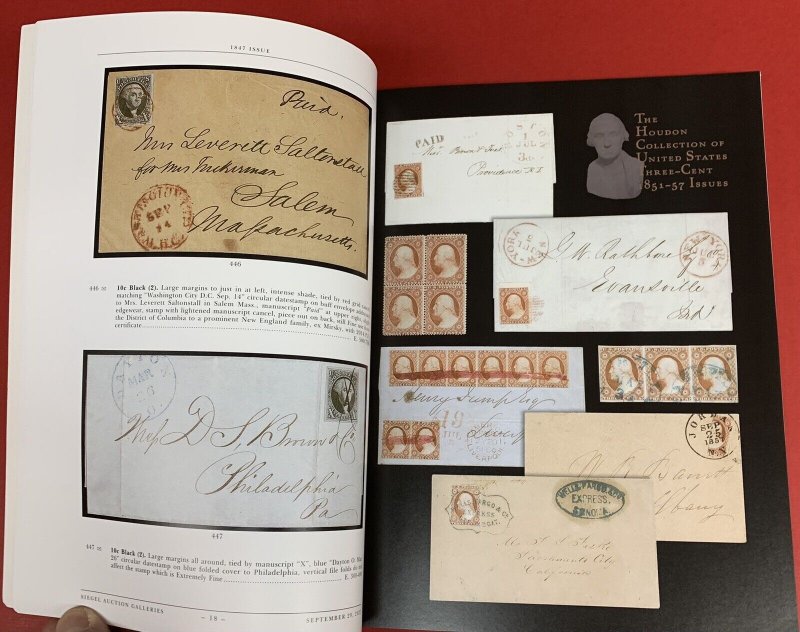 1847 ISSUE
Paid.
Mrs Leverett Saltonstall
for Mrs Tuckerman
Salem
Massachusetts.
WASHINGTON CITY
SEP
14
D.C.
446
446 10c Black (2). Large margins to just in at left, intense shade, tied by red grid
matching "Washington City D.C. Sep. 14" circular datestamp on buff envelope
to Mrs. Leverett Saltonstall in Salem Mass., manuscript "Paid" at upper right,
edgewear, stamp with lightened manuscript cancel, piece out on back, still Fine
the District of Columbia to a prominent New England family, ex Mirsky, with
certificate
DAYTON
MAR
26
Messrs D. S. Brown & Co
Philadelphia
Pa
447
447 10c Black (2). Large margins all around, tied by manuscript "X", blue "Dayton O. Mar
26" circular datestamp on blue folded cover to Philadelphia, vertical file folds do
affect the stamp which is Extremely Fine
SIEGEL AUCTION GALLERIES
– 18 –
SEPTEMBER
The
Houdon
Collection of
United States
Three-Cent
1851-57 Issues
PAID
Providence R.I.
NEW-YORK
NEW-YORK
G. W. Rathbone
Evansville
Ind
19
JORDAN
SEP
25
185
N.Y.
WELLS, FARGO & CO
EXPRESS
SONORA
Sacramento City
California